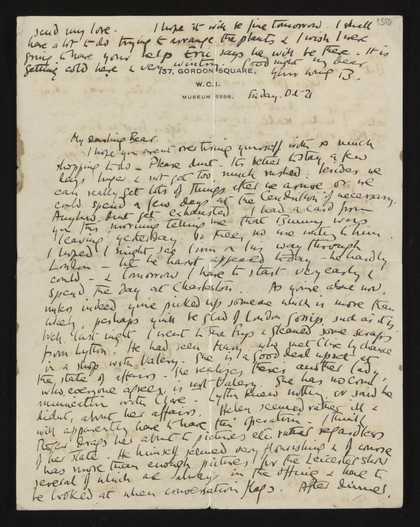 send my love. I hope it will be fine tomorrow. I shall
have a lot to do trying to arrange the plants & I wish I were
going to have your help. Eric says he will be free. It is
getting cold here & very wintry. Good night my bear
Your loving B.
37, GORDON SQUARE,
W.C.1.
MUSEUM
Friday, Oct 21
My darling Bear
I hope you aren't overtiring yourself with so much
shopping to do. Please don't. It's better to stay a few
days longer & not get too much rushed. Besides we
can really get lots of things after we arrive or we
could spend a few days at the if necessary.
Anyhow dont get exhausted. I had a card from
you this morning telling me that Bunny was
leaving yesterday
I hoped I might see him on his way through
London – but he hasn't appeared today – he hardly
could – & tomorrow I have to start very early &
spend the day at Charleston. As you're alone now,
unless indeed you've picked up someone which is more than
likely, perhaps you'll be glad of London gossip such as it is.
Last night I went to the & gleaned some scraps
from Lytton. He had seen who met Clive by chance
in a shop with Valery. She is a good deal upset at
the state of affairs. She realizes there's another lady,
who everyone agrees is not Valery. She has no
communication with Clive. Lytton knew nothing or said he
didn't, about her affairs. Helen seemed rather ill &
will apparently have to have this operation. I think
Roger drags her about to pictures etc rather regardless
of her state. He himself seemed very flourishing & of course
was more than enough pictures for the Leicester show
several of which are always in the & have to
be looked at when conversation flags. After dinner,